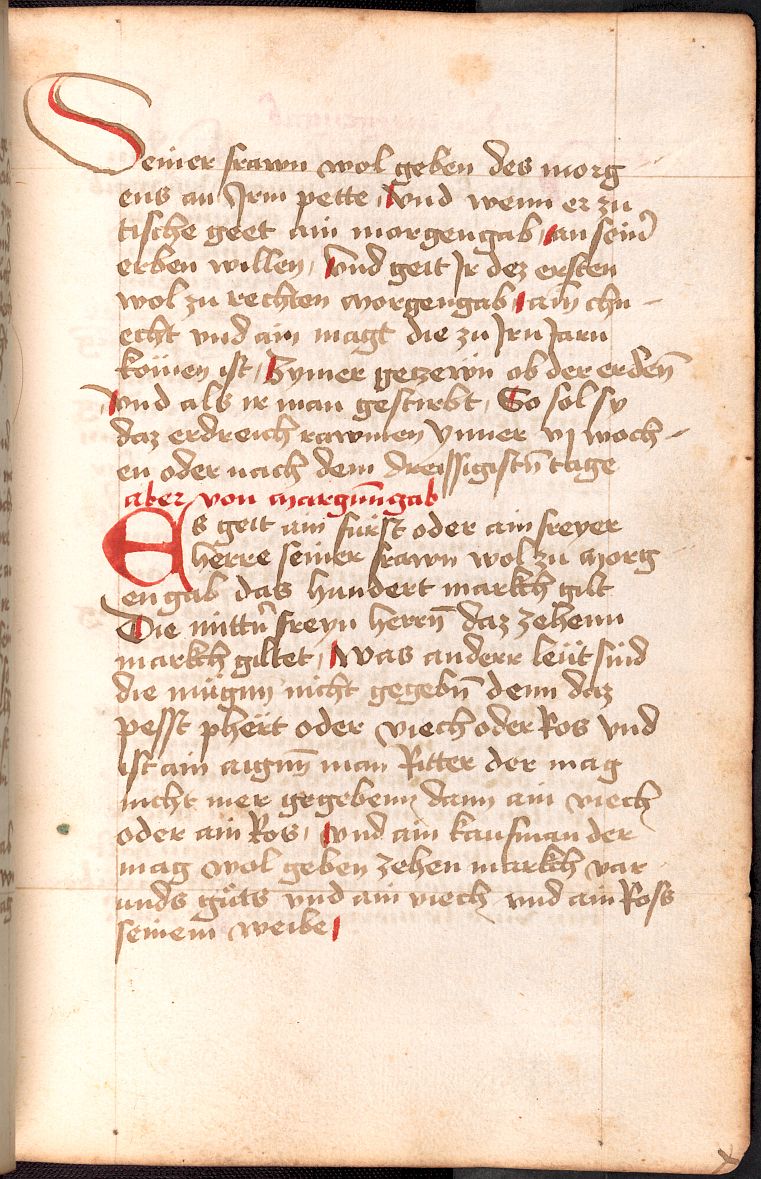 Seiner frawn wol geben des morg
ens an Irm pette, Vnd wenn er zu
tische geet ain morgengab, an seinˀ
erben willen, Vnd geit Ir dez ersten
wol zu rechten morgengab, ain chn-
echt vnd ain magt die zu Irn Jarn
komen ist, Zymer getzewn ob der erden̄
Vnd als ir man gestirbt, So sol sy
daz erdreich rawmen ynner vj woch-
en oder nach dem dreissigistn̄ tage
aber von margnn̄gab
Es geit ain fürst oder ain freyer
herre seiner frawn wol zu morg
engab das hundert markch gilt
Die mittnˀ freyn herrn̄ daz zehenn
markch giltet, Was anderr leüt sind
die mügnn nicht gegebn̄ denn daz
pesst phert oder viech oder Ros vnd
ist ain aignn̄ man Ritter der mag
nicht mer gegebenn dann ain viech
oder ain Ros, Vnd ain kaufman der
mag wol geben zehen markch var
unds gůts vnd ain viech vnd ain Ross
seinem weibe